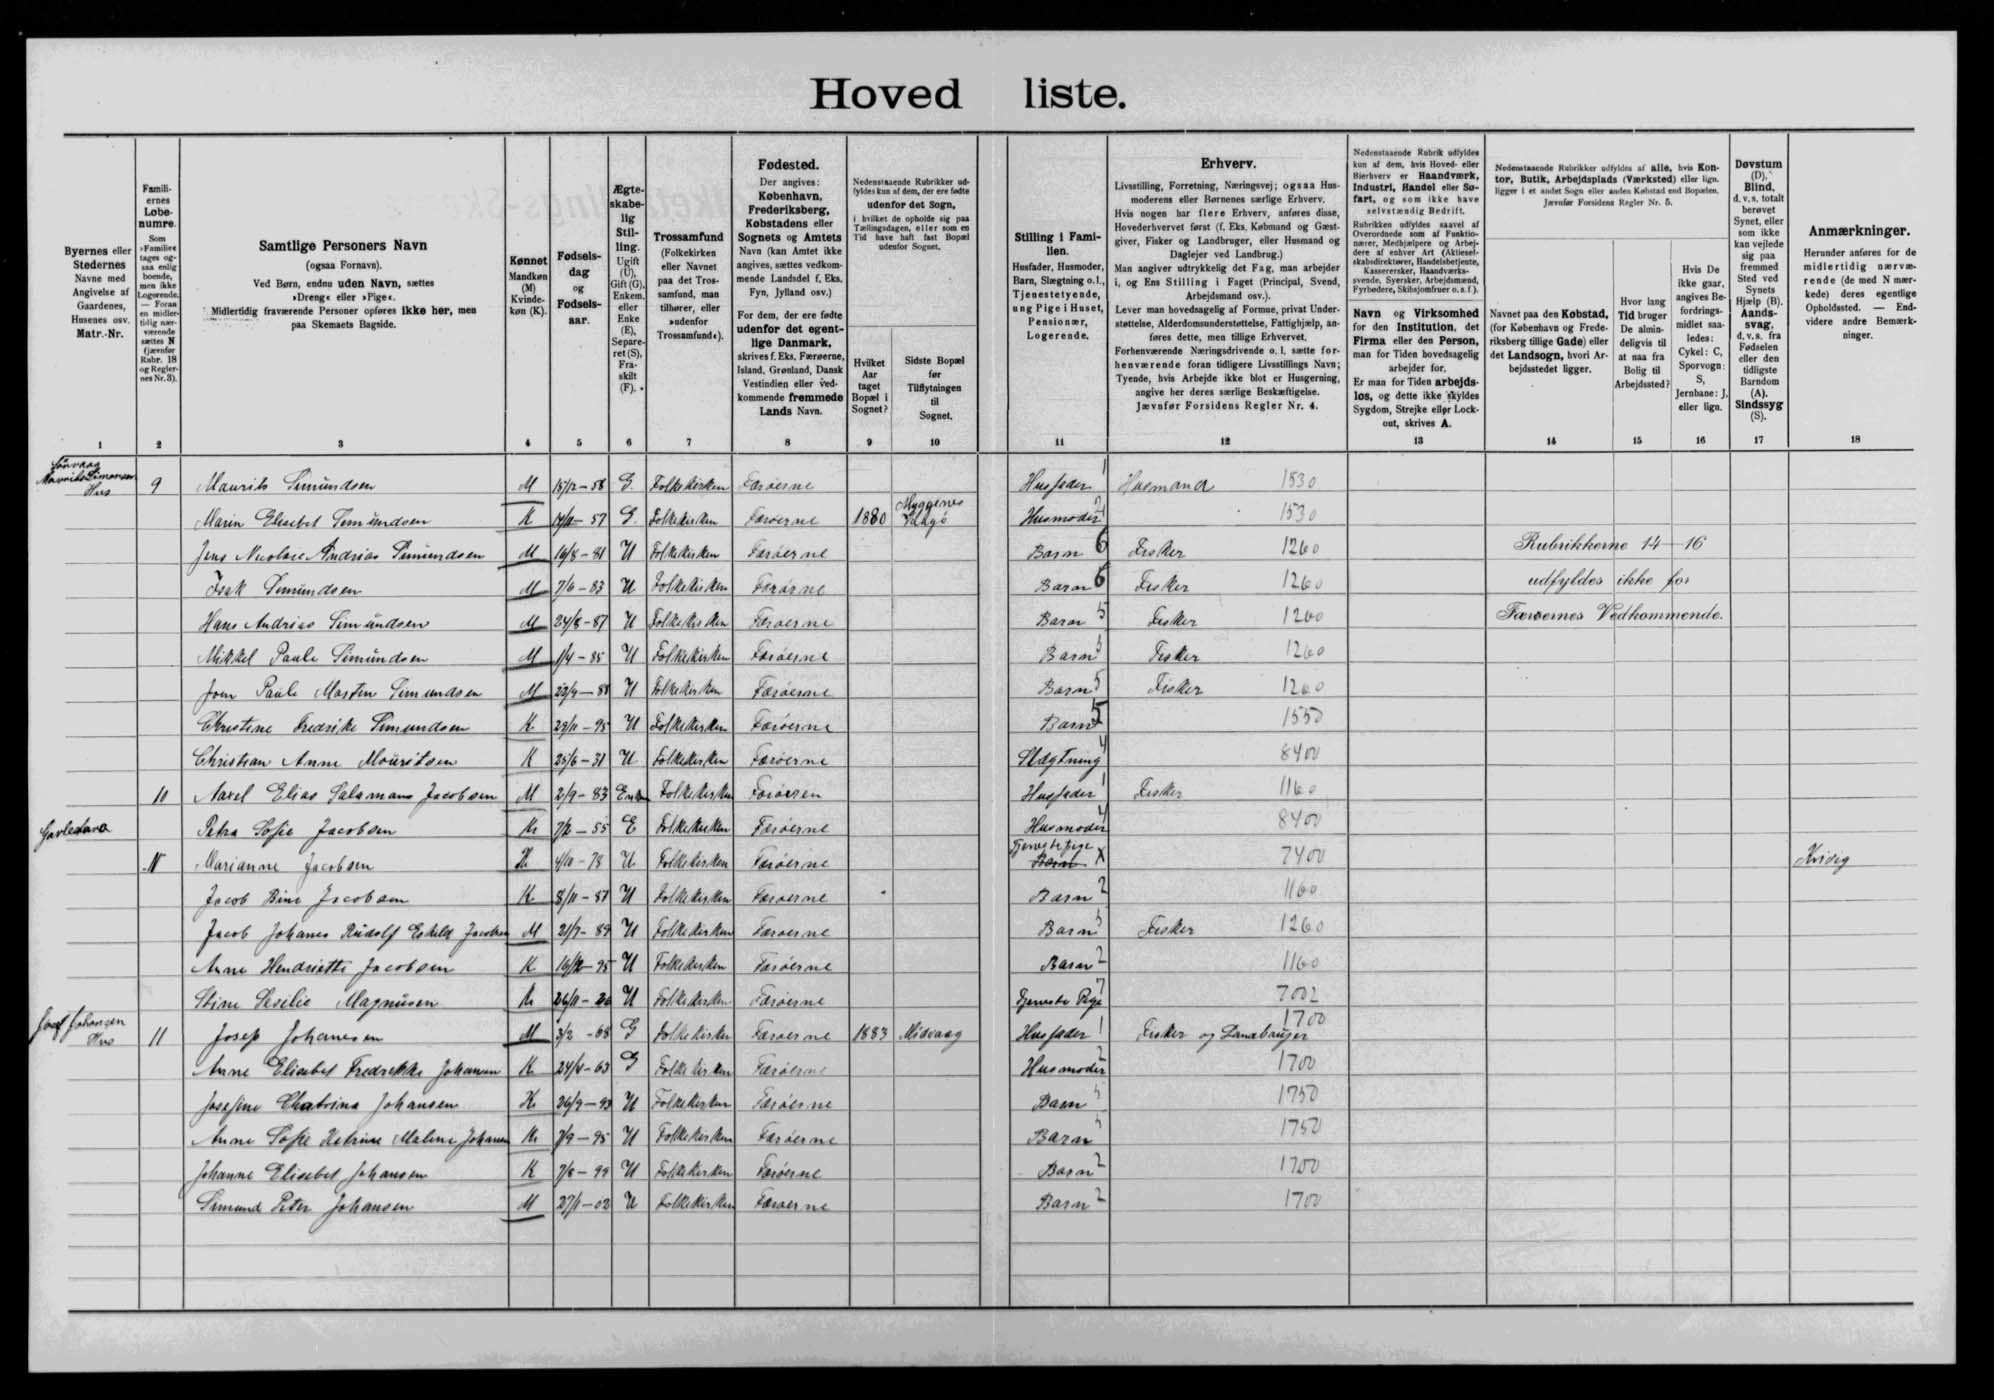 Hovedliste.
Byernes eller Stedernes Navne med Angivelse af Gaardenes, Husenes osv. Matr.-Nr.
Familiernes Løbenumre. Som »Familie« tages ogsaa enlig boende, men ikke Logerende. — Foran en midlertidig nærværende sættes N (jævnfør Rubr. 18 og Regler­nes Nr. 3).
Samtlige Personers Navn (ogsaa Fornavn). Ved Børn, endnu uden Navn, sættes »Dreng« eller »Pige«. Midlertidig fraværende Personer opføres ikke her, men paa Skemaets Bagside.
Kønnet Mandkøn (M) Kvindekøn (K).
Fødselsdag og Fødselsaar.
Ægteskabelig Stilling. Ugift (U), Gift (G), Enkem. eller Enke (E), Separeret (S), Fraskilt (F).
Trossamfund (Folkekirken eller Navnet paa det Trossamfund, man tilhører, eller »udenfor Trossamfund«).
Fødested. Der angives: København, Frederiksberg, Købstadens eller Sognets og Amtets Navn (kan Amtet ikke angives, sættes vedkommende Landsdel f. Eks. Fyn, Jylland osv.) For dem, der ere fødte udenfor det egentlige Danmark, skrives f. Eks. Færøerne, Island, Grønland, Dansk Vestindien eller vedkommende fremmede Lands Navn.
Nedenstaaende Rubrikker udfyldes kun af dem, der ere fødte udenfor det Sogn, i hvilket de opholde sig paa Tællingsdagen, eller som en Tid have haft fast Bopæl udenfor Sognet.
Hvilket Aar taget Bopæl i Sognet?
Sidste Bopæl før Tilflytningen til Sognet.
Stilling i Familien. Husfader, Husmoder, Barn, Slægtning o. l., Tjenestetyende, ung Pige i Huset, Pensionær, Logerende.
Erhverv. Livsstilling, Forretning, Næringsvej; ogsaa Husmoderens eller Børnenes særlige Erhverv. Hvis nogen har flere Erhverv, anføres disse, Hovederhvervet først (f. Eks. Købmand og Gæstgiver, Fisker og Landbruger, eller Husmand og Daglejer ved Landbrug.) Man angiver udtrykkelig det Fag, man arbejder i, og Ens Stilling i Faget (Principal, Svend, Arbejdsmand osv.). Lever man hovedsagelig af Formue, privat Understøttelse, Alderdomsunderstøttelse, Fattighjælp, anføres dette, men tillige Erhvervet. Forhenværende Næringsdrivende o. l. sætte forhenværende foran tidligere Livsstillings Navn; Tyende, hvis Arbejde ikke blot er Husgerning, angive her deres særlige Beskæftigelse. Jævnfør Forsidens Regler Nr. 4.
Nedenstaaende Rubrik udfyldes kun af dem, hvis Hoved- eller Bierhverv er Haandværk, Industri, Handel eller Søfart, og som ikke have selvstændig Bedrift. Rubrikken udfyldes saavel af Overordnede som af Funktionærer, Medhjælpere og Arbejdere af enhver Art (Aktieselskabsdirektører, Handelsbetjente, Kasserersker, Haandværkssvende, Syersker, Arbejdsmænd, Fyrbødere, Skibsjomfruer o. s. f.).
Navn og Virksomhed for den Institution, det Firma eller den Person, man for Tiden hovedsagelig arbejder for. Er man for Tiden arbejdsløs, og dette ikke skyldes Sygdom, Strejke eller Lockout, skrives A.
Nedenstaaende Rubrikker udfyldes af alle, hvis Kontor, Butik, Arbejdsplads (Værksted) eller lign. ligger i et andet Sogn eller anden Købstad end Bopælen. Jævnfør Forsidens Regler Nr. 5.
Navnet paa den Købstad, (for København og Frederiksberg tillige Gade) eller det Landsogn, hvori Arbejdsstedet ligger.
Hvor lang Tid bruger De almindeligvis til at naa fra Bolig til Arbejdssted?
Hvis De ikke gaar, angives Befordringsmidlet saaledes: Cykel: C, Sporvogn: S, Jernbane: J, eller lign.
Døvstum (D), Blind, d. v. s. totalt berøvet Synet, eller som ikke kan vejlede sig paa fremmed Sted ved Synets Hjælp (B). Aandssvag, d. v. s. fra Fødselen eller den tidligste Barndom (A). Sindssyg (S).
Anmærkninger. Herunder anføres for de midlertidig nærværende (de med N mærkede) deres egentlige Opholdssted. — Endvidere andre Bemærkninger.
1 2 3 4 5 6 7 8 9 10 11 12 13 14 15 16 17 18
Sörvaag Mavrits Simonsen Hus 9 Maurits Simundsen M 15/12-58 G. Folkekirken Færøerne Husfader 1 Husmand 1530
Marin Elisebet Simundsen K 14/11-57 G. Folkekirken Færøerne 1880 Myggenes Vaagö Husmoder 2 1530
Jens Nicolai Andrias Simundsen M 16/8-81 U Folkekirken Færøerne Barn 6 Fisker 1260 Rubrikkerne 14-16
Isak Simundsen M 7/6-83 U Folkekirken Færøerne Barn 5 Fisker 1260 udfyldes ikke for
Hans Andrias Simundsen M 24/8-87 U Folkekirken Færøerne Barn 5 Fisker 1260 Færøernes Vedkommende.
Mikkel Paule Simundsen M 1/4-85 U Folkekirken Færøerne Barn 5 Fisker 1260
Joen Paule Morten Simundsen M 22/9-88 U Folkekirken Færøerne Barn 5 Fisker 1260
Christine Fredrike Simundsen K 29/11-95 U Folkekirken Færøerne Barn 5 1550
Christian Anne Mouritsen K 25/6-31 U Folkekirken Færøerne Slægtning 4 8400
10 Axel Elias Salamans Jacobsen M 2/9-83 Enkem Folkekirken Færøerne Husfader 1 Fisker 1160
Petra Sofie Jacobsen K 7/2-55 E Folkekirken Færøerne Husmoder 4 8400
Marianne Jacobsen K 4/11-78 U Folkekirken Færøerne Tjenestepige Barn X 7400
Jacob Bine Jacobsen K 8/11-87 U Folkekirken Færøerne Barn 2 1160
Jacob Johanes Rudolf Eskild Jacobsen M 21/7-89 U Folkekirken Færøerne Barn 5 Fisker 1260
Anne Hendriette Jacobsen K 16/12-95 U Folkekirken Færøerne Barn 2 1160
Stine Sesilie Magnusen K 26/11-20 U Folkekirken Færøerne Tjeneste Pige 7 7002
Josef Johansen Hus 11 Josep Johansen M 3/2-68 G Folkekirken Færøerne 1883 Midvaag Husfader 1 Fisker og Landbruger 1700
Anne Elisebet Fredrikke Johansen K 24/4-63 G Folkekirken Færøerne Husmoder 2 1700
Josefine Chatrina Johansen K 26/9-93 U Folkekirken Færøerne Barn 5 1750
Anne Sofie Katrine Malene Johansen K 7/9-95 U Folkekirken Færøerne Barn 5 1750
Johanne Elisebet Johansen K 7/8-99 U Folkekirken Færøerne Barn 2 1700
Simund Peter Johansen M 27/1-02 U Folkekirken Færøerne Barn 2 1700